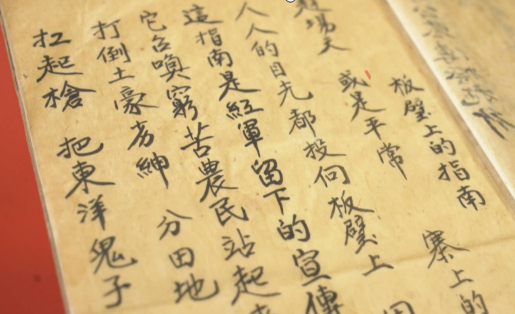 板壁上的指南
趕場天 或是平常 寨上的
人人的目光都投向板壁上
這指南是紅軍留下的宣傳
它召喚窮苦農民站起
打倒土豪劣紳 分田地
扛起槍 把東洋鬼子